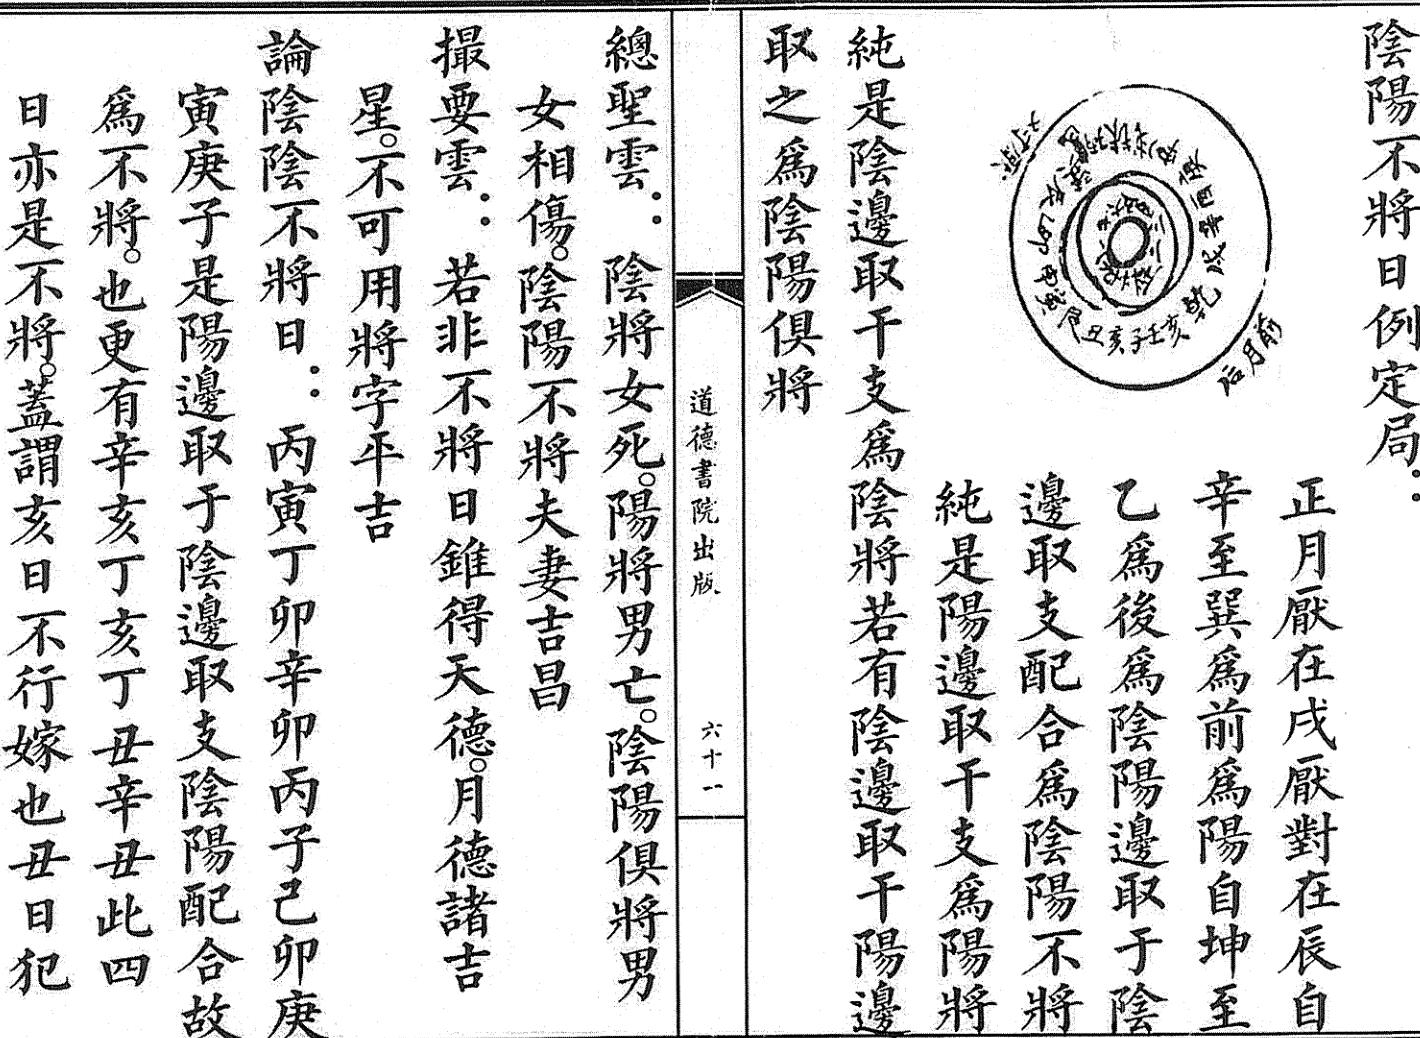 陰陽不將日例定局：
正月厭在戌厭對在辰自
辛至巽爲前爲陽自坤至
乙爲後爲陰陽邊取于陰
邊取支配合爲陰陽不將
純是陽邊取干支爲陽將
純是陰邊取干支爲陰將若有陰邊取干陽邊
取之爲陰陽俱將
前月厭后
丑亥子壬亥乾戌辛酉
道德書院出版
六十一
總聖雲：陰將女死。陽將男亡。陰陽俱將男
女相傷。陰陽不將夫妻吉昌
撮要雲：若非不將日錐得天德。月德諸吉
星。不可用將字平吉
論陰陰不將日：丙寅丁卯辛卯丙子己卯庚
寅庚子是陽邊取于陰邊取支陰陽配合故
爲不將。也更有辛亥丁亥丁丑辛丑此四
日亦是不將。蓋謂亥日不行嫁也丑日犯